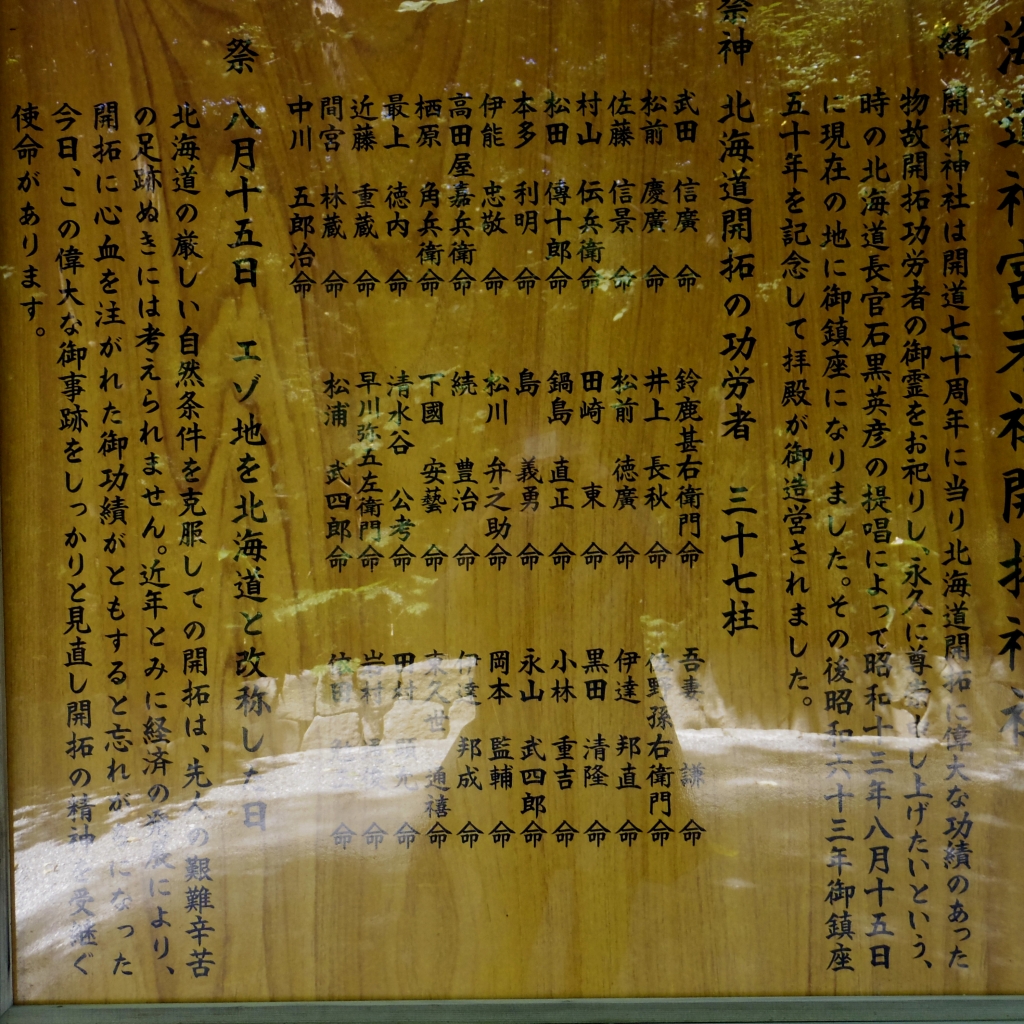 海道神宮末社開拓神社
緒 開拓神社は開道七十周年に当り北海道開拓に偉大な功績のあった
物故開拓功労者の御霊をお祀りし。永久に尊崇申し上げたいという、
時の北海道長官石黒英彦の提唱によって昭和十三年八月十五日
に現在の地に御鎮座になりました。その後昭和六十三年御鎮座
五十年を記念して拝殿が御造営されました。
祭神 北海道開拓の功労者 三十七柱
武田 信廣 命
松前 慶廣 命
佐藤 信景 命
村山 伝兵衛 命
松田 傳十郎 命
本多 利明 命
伊能 忠敬 命
高田屋嘉兵衛 命
栖原 角兵衛 命
最上 徳内 命
近藤 重蔵 命
間宮 林蔵 命
中川 五郎治 命
鈴鹿甚右衛門 命
井上 長秋 命
松前 徳廣 命
田崎 東 命
鍋島 直正 命
島 義勇 命
松川 弁之助 命
続 豊治 命
下國 安藝 命
清水谷 公考 命
早川弥五左衛門 命
松浦 武四郎 命
吾妻 謙 命
佐野孫右衛門 命
伊達 邦直 命
黒田 清隆 命
小林 重吉 命
永山 武四郎 命
岡本 監輔 命
伊達 邦成 命
東久世 通禧 命
命
岩村 命
命
祭 八月十五日 エゾ地を北海道と改称した日
北海道の厳しい自然条件を克服しての開拓は、先人の艱難辛苦
の足跡ぬきには考えられません。近年とみに経済の発展により、
開拓に心血を注がれた御功績がともすると忘れがちになった
今日、この偉大な御事跡をしっかりと見直し開拓の精神を受継ぐ
使命があります。